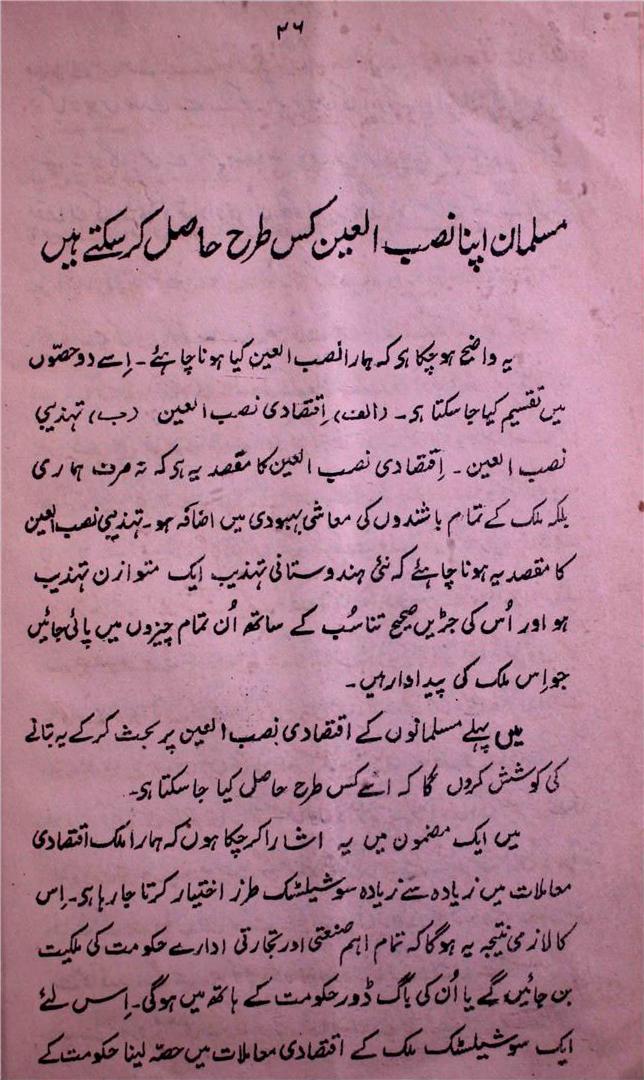 ۳۶
مسلمان اپنا نصب العین کس طرح حاصل کر سکتے ہیں
یہ واضح ہو چکا ہی کہ ہمارا نصب العین کیا ہونا چاہئے ۔ اِسے دو حصّوں
میں تقسیم کیا جا سکتا ہی ۔ (الف) اِقتصادی نصب العین (ب) تہذیبی
نصب العین ۔ اِقتصادی نصب العین کا مقصد یہ ہو کہ نہ صرف ہماری
بلکہ ملک کے تمام باشندوں کی معاشی بہبودی میں اضافہ ہو ۔ تہذیبی نصب العین
کا مقصد یہ ہونا چاہئے کہ نئی ہندوستانی تہذیب ایک متوازن تہذیب
ہو اور اُس کی جڑیں صحیح تناسُب کے ساتھ اُن تمام چیزوں میں پائی جائیں
جو اِس ملک کی پیداوار ہیں ۔
میں پہلے مسلمانوں کے اقتصادی نصب العین پر بحث کر کے یہ بتانے
کی کوشش کروں گا کہ اُسے کس طرح حاصل کیا جا سکتا ہی ۔
میں ایک مضمون میں یہ اشارا کر چکا ہوں کہ ہمارا ملک اقتصادی
معاملات میں زیادہ سے زیادہ سوشیلسٹک طرز اختیار کرتا جا رہا ہی ۔ اِس
کا لازمی نتیجہ یہ ہوگا کہ تمام اہم صنعتی اور تجارتی ادارے حکومت کی ملکیت
بن جائیں گے یا اُن کی باگ ڈور حکومت کے ہاتھ میں ہوگی ۔ اِس لئے
ایک سوشیلسٹک ملک کے اقتصادی معاملات میں حصّہ لینا حکومت کے